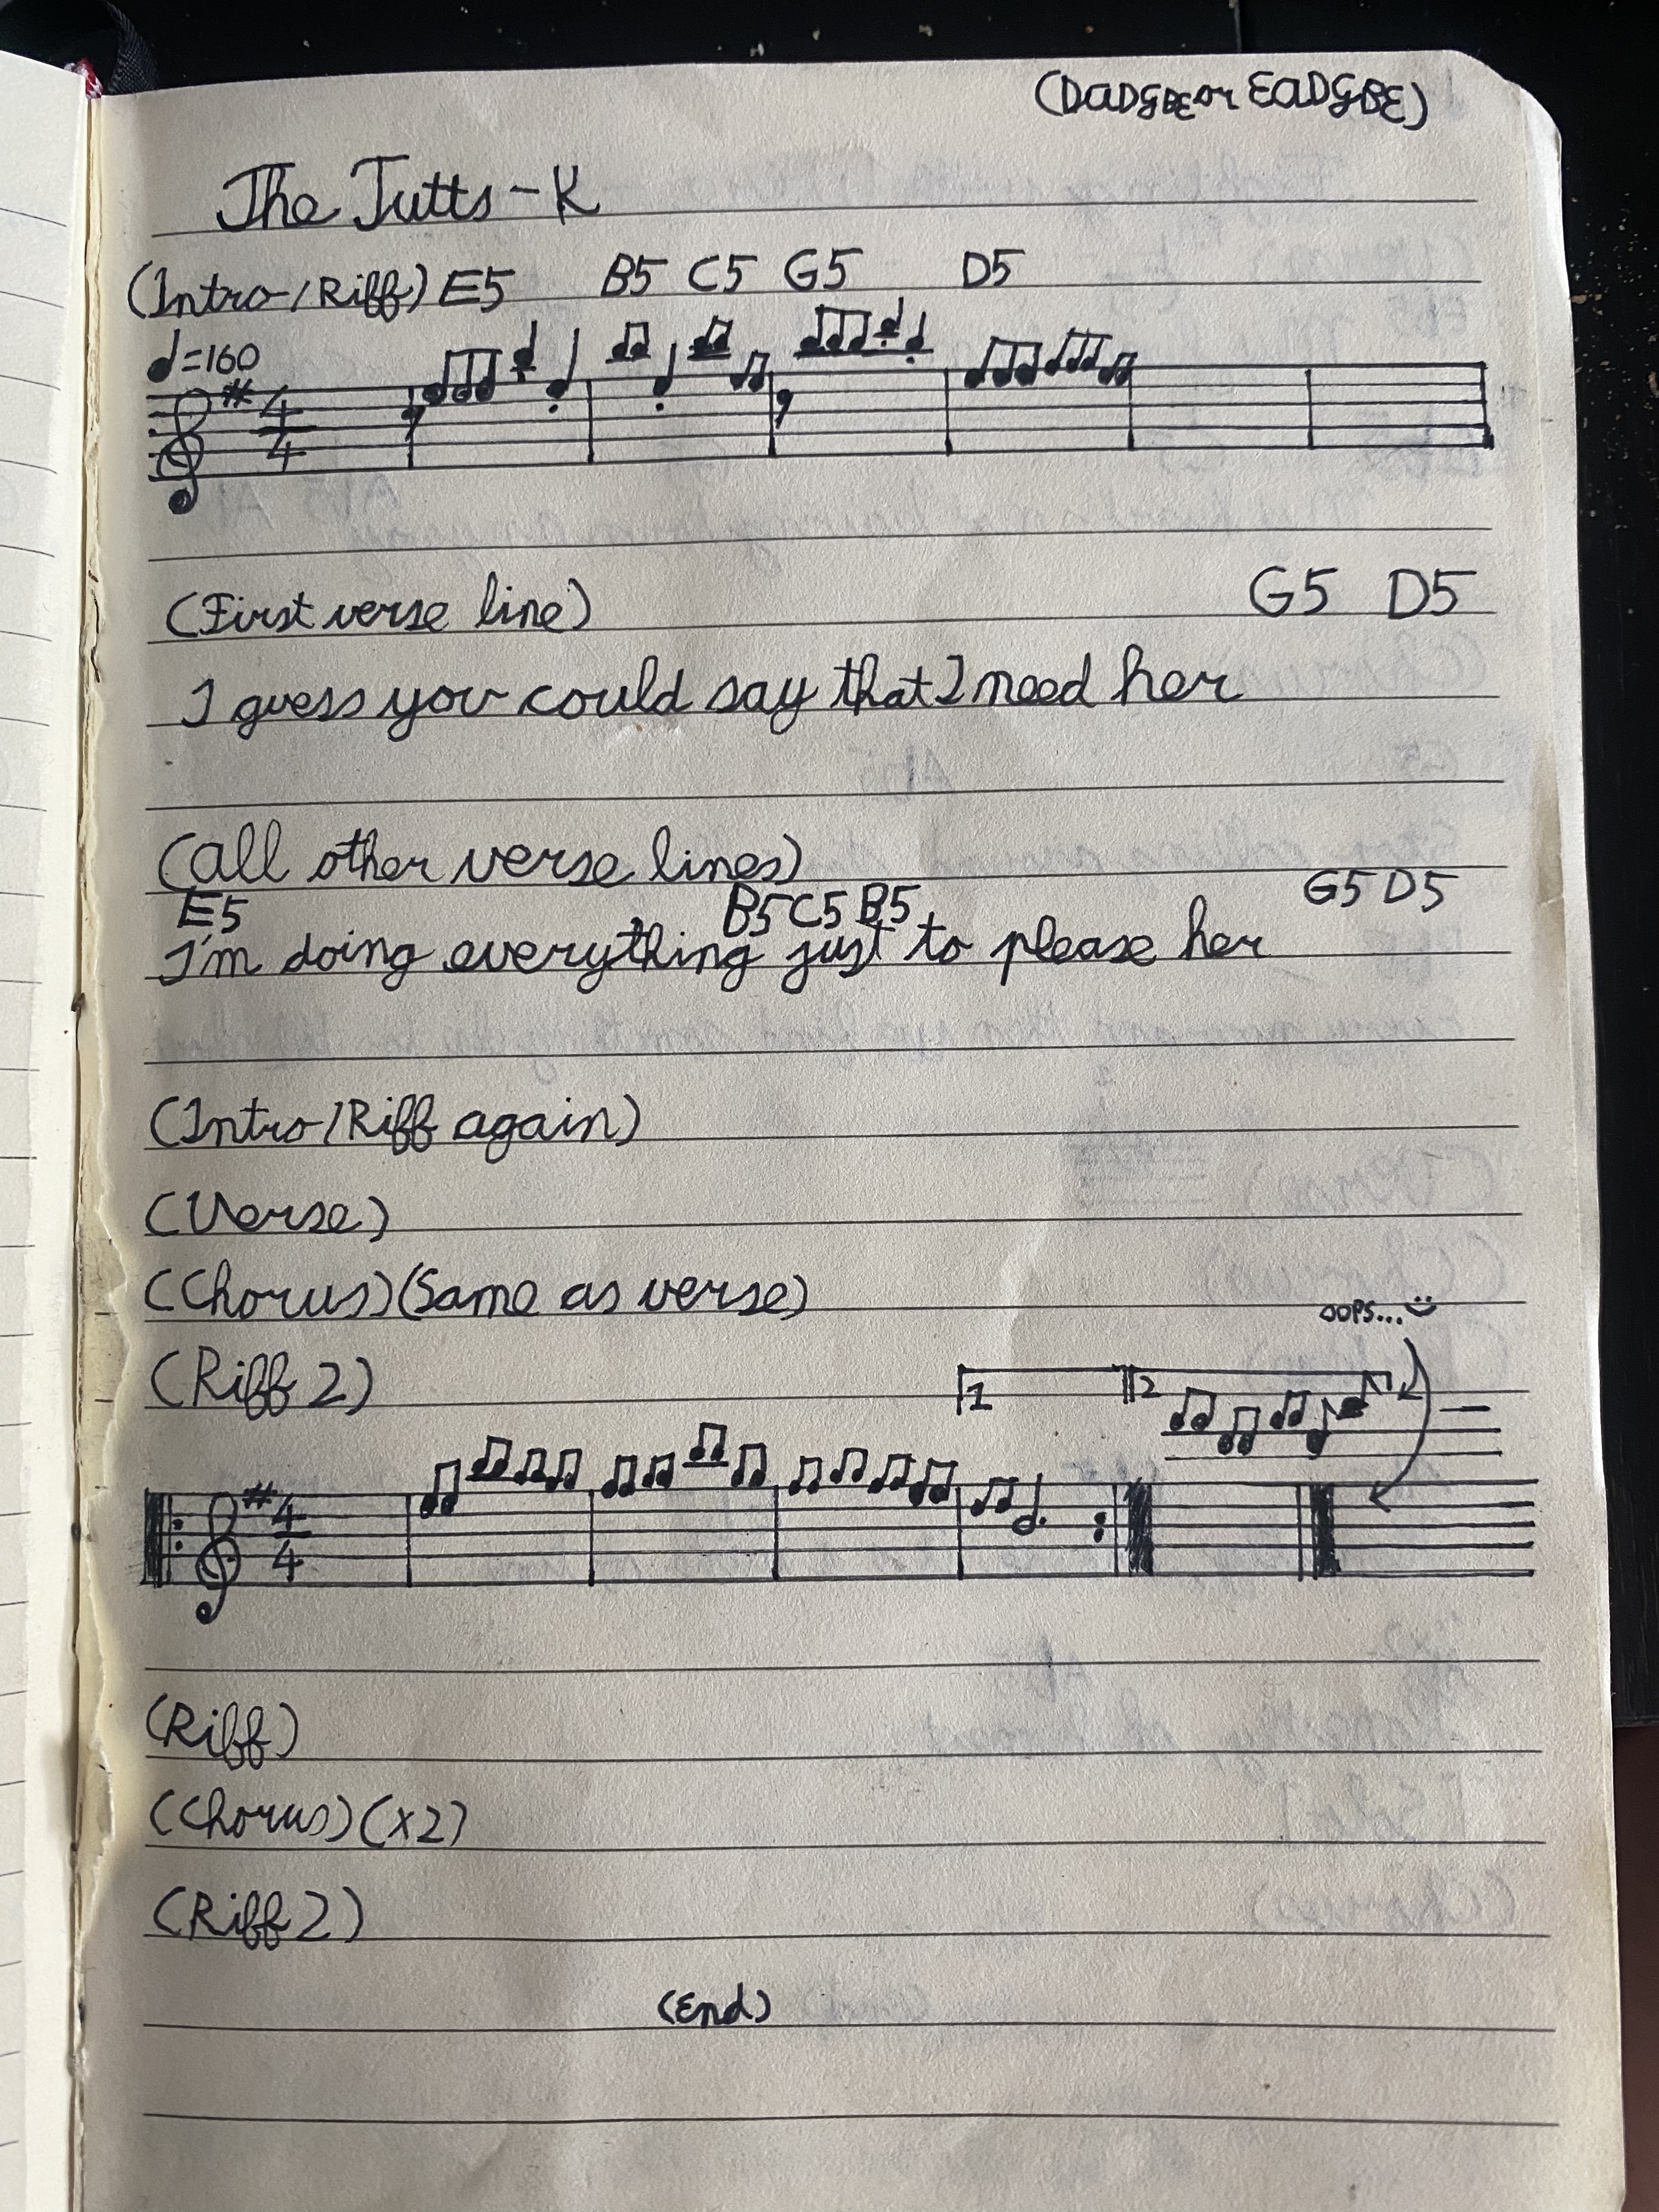 (DADGBE or EADGBE)
The Tutts - K
(Intro/Riff) E5 B5 C5 G5 D5
♩=160
# 4/4
(First verse line) G5 D5
I guess you could say that I need her
(All other verse lines)
E5 B5 C5 B5 G5 D5
I'm doing everything just to please her
(Intro/Riff again)
(Verse)
(Chorus) (Same as verse)
OOPS...
(Riff 2) 1 2
# 4/4
(Riff)
(Chorus) (x2)
(Riff 2)
(End)